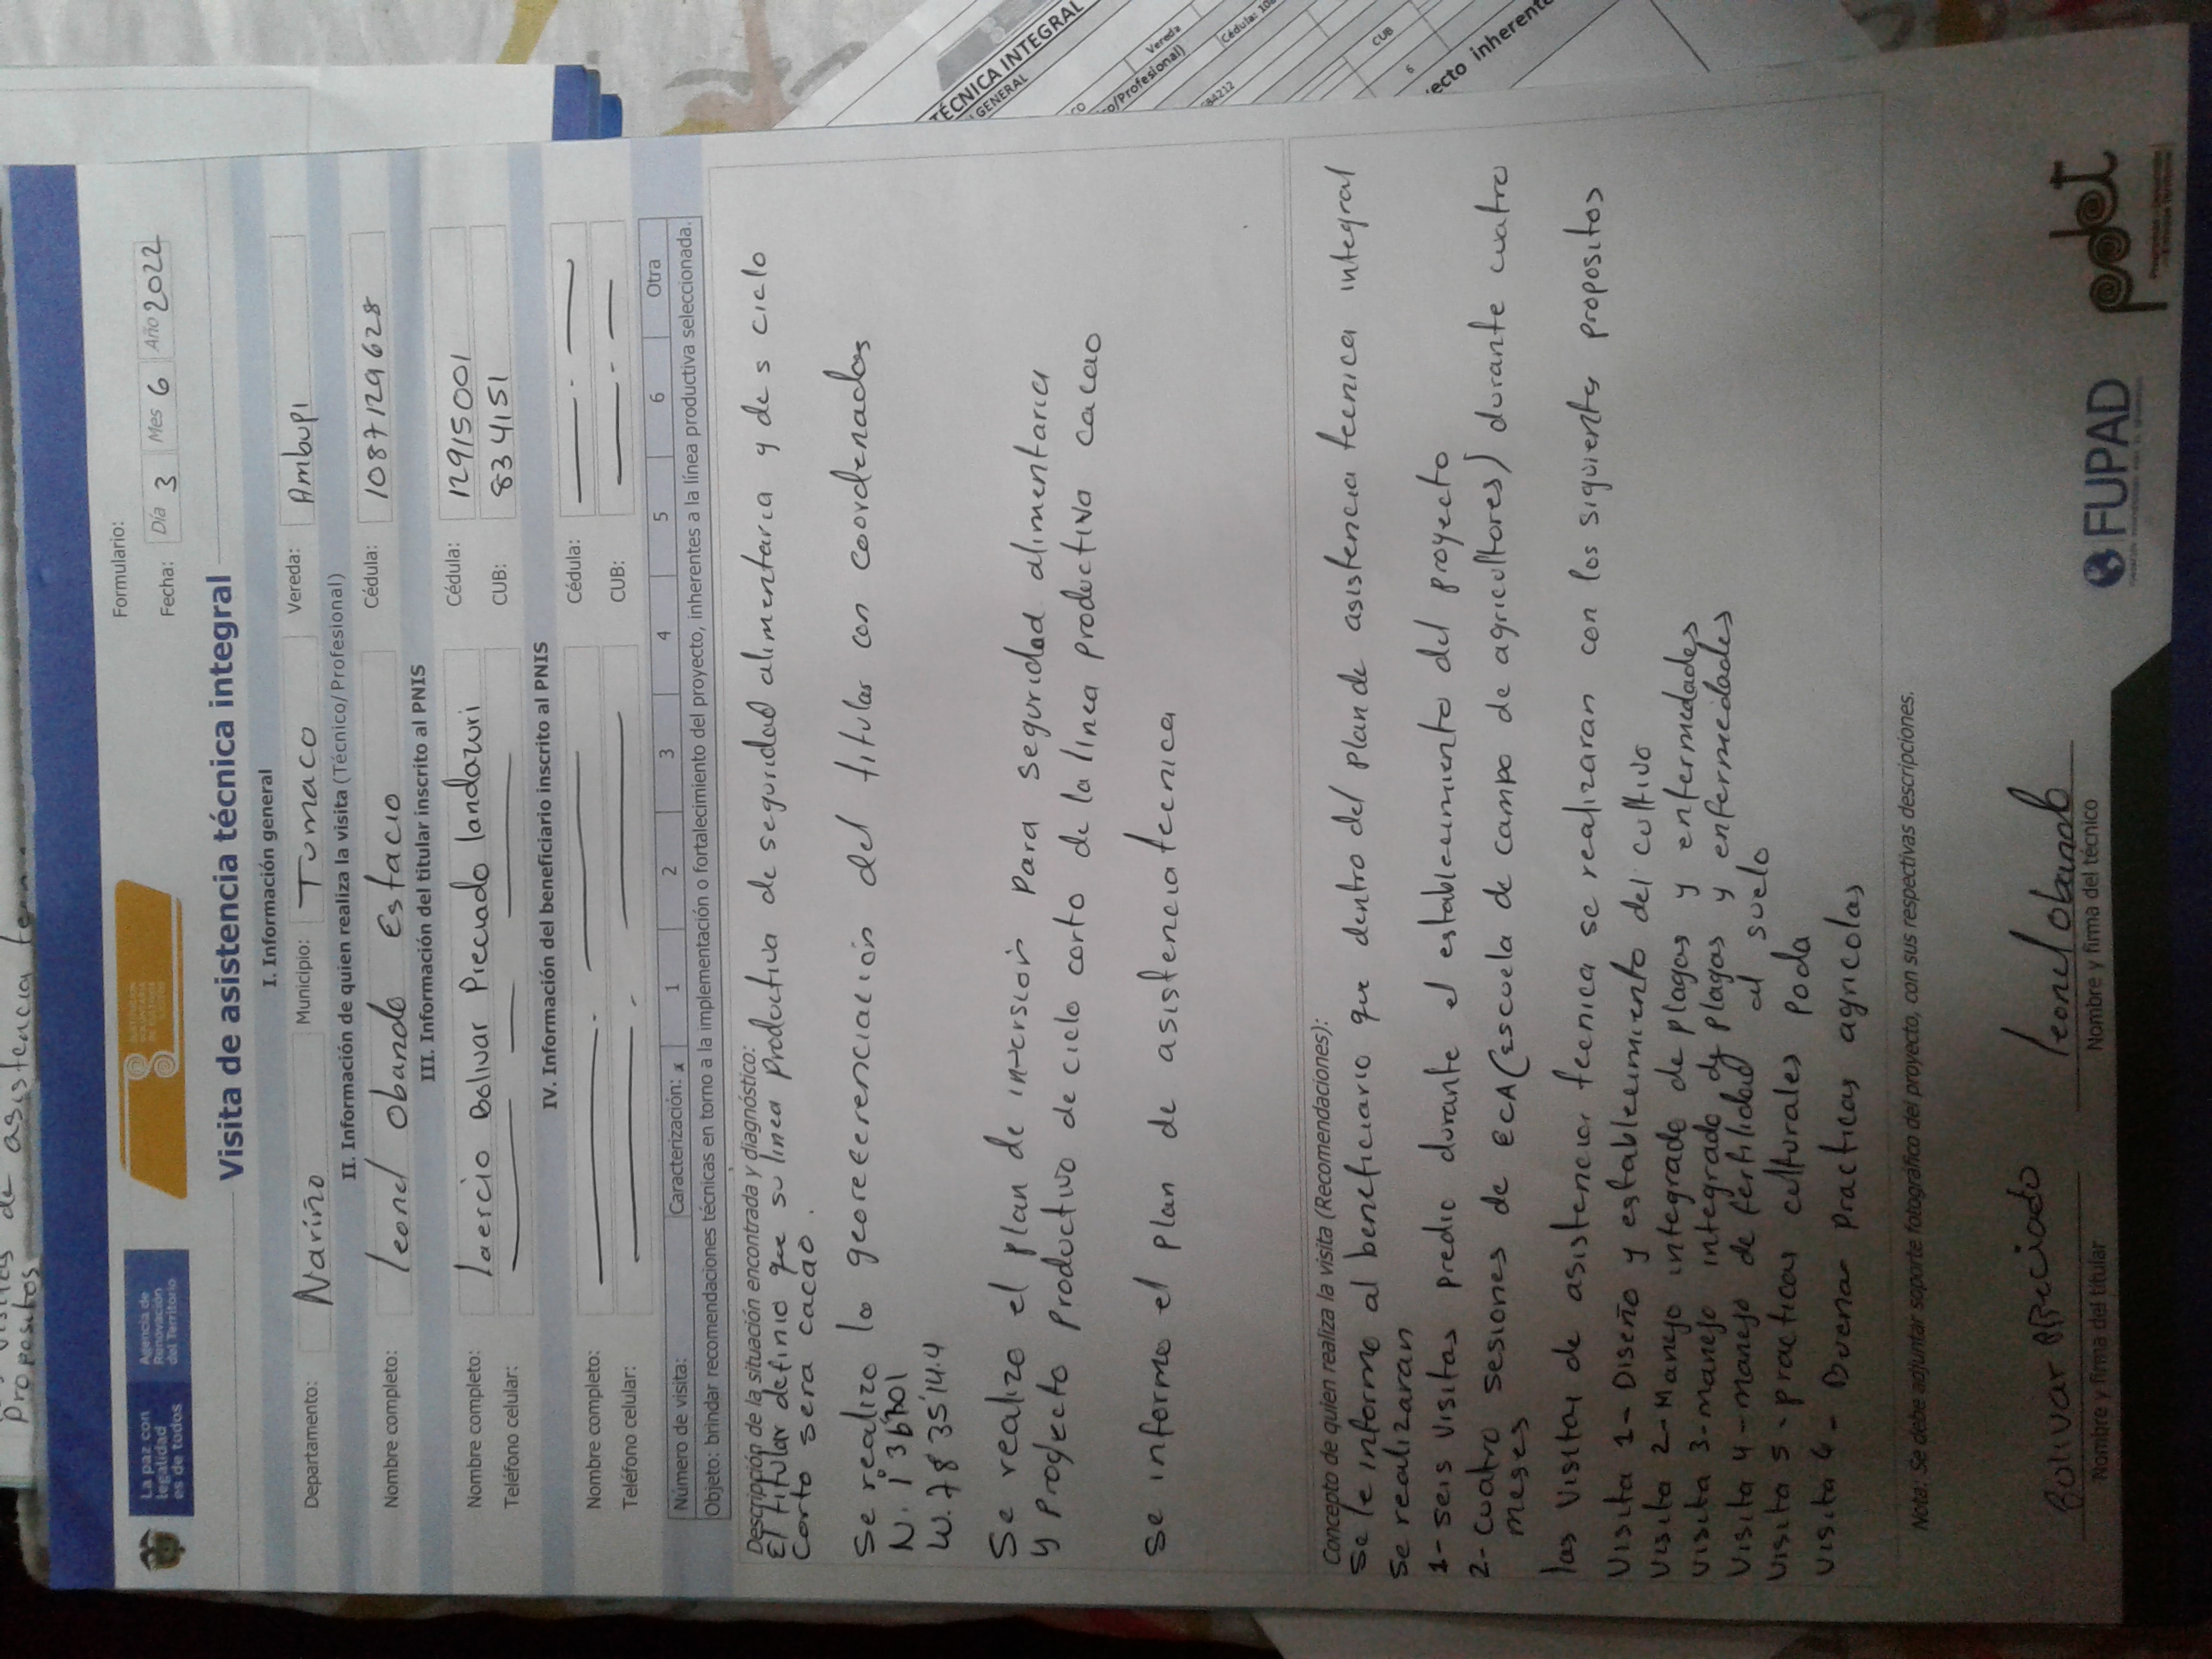 La paz con
legalidad
es de todos
Agencia de
Renovación
del Territorio
Formulario:
Fecha: Día 3 Mes 6 Año 2022
Visita de asistencia técnica integral
I. Información general
Departamento: Nariño Municipio: Tumaco Vereda: Ambupi
II. Información de quien realiza la visita (Técnico/Profesional)
Nombre completo: leonel obando Estacio Cédula: 1087129628
III. Información del titular inscrito al PNIS
Nombre completo: laercio Bolivar Preciado landazuri Cédula: 12915001
Teléfono celular: CUB: 834151
IV. Información del beneficiario inscrito al PNIS
Nombre completo: Cédula:
Teléfono celular: CUB:
Número de visita: Caracterización: x 1 2 3 4 5 6 Otra
Objeto: brindar recomendaciones técnicas en torno a la implementación o fortalecimiento del proyecto, inherentes a la línea productiva seleccionada.
Descripción de la situación encontrada y diagnóstico:
El titular definio que su linea productiva de seguridad alimentaria y de s ciclo
Corto sera cacao.
Se realizo la georeerenciacion del titular con coordenadas
W. 78 35'14.4
Se realizo el plan de inversion para seguridad alimentaria
y proyecto productivo de ciclo corto de la linea productiva cacao
Se informo el plan de asistencia tecnica
Concepto de quien realiza la visita (Recomendaciones):
Se le informo al beneficiario que dentro del plan de asistencia tecnica integral
Se realizaran
1- seis visitas predio durante el establecimiento del proyecto
2- cuatro sesiones de ECA (Escuela de campo de agricultores) durante cuatro
meses
las visitas de asistencia tecnica se realizaran con los siguientes propositos
Visita 1- Diseño y establecimiento del cultivo
Visita 2- Manejo integrado de plagas y enfermedades
Visita 3- manejo integrado de plagas y enfermedades
Visita 4- manejo de fertilidad al suelo
Visita 5- practicas culturales Poda
Visita 6- Buenas practicas agricolas
Nota: Se debe adjuntar soporte fotográfico del proyecto, con sus respectivas descripciones.
Bolivar Preciado
leonel obando
Nombre y firma del titular
Nombre y firma del técnico
FUPAD
pdet
de asistencia
Propositos
TÉCNICA INTEGRAL
GENERAL
Vereda
o/Profesional)
Cédula:
84212
CUB
6
ecto inherente